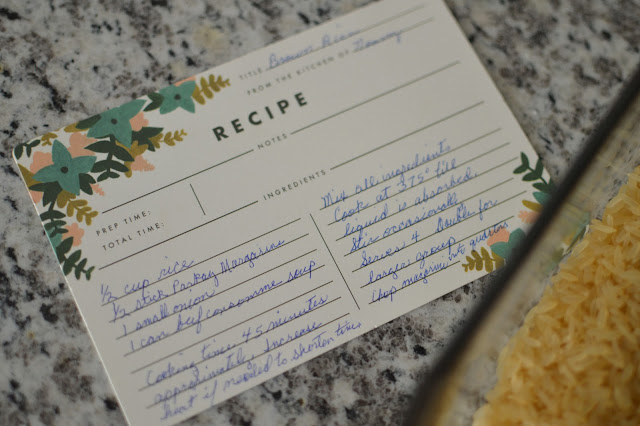 TITLE Brown Rice
FROM THE KITCHEN OF Nammy
RECIPE
NOTES
PREP TIME:
TOTAL TIME:
INGREDIENTS
1/2 cup rice
1/2 stick Parkay Margarine
1 small onion
1 can beef consomme soup
Cooking time 45 minutes
approximately. Increase
heat if needed to shorten time.
Mix all ingredients.
Cook at 375° till
liquid is absorbed.
Stir occasionally
Serves 4. Double for
larger group
Chop margarine into